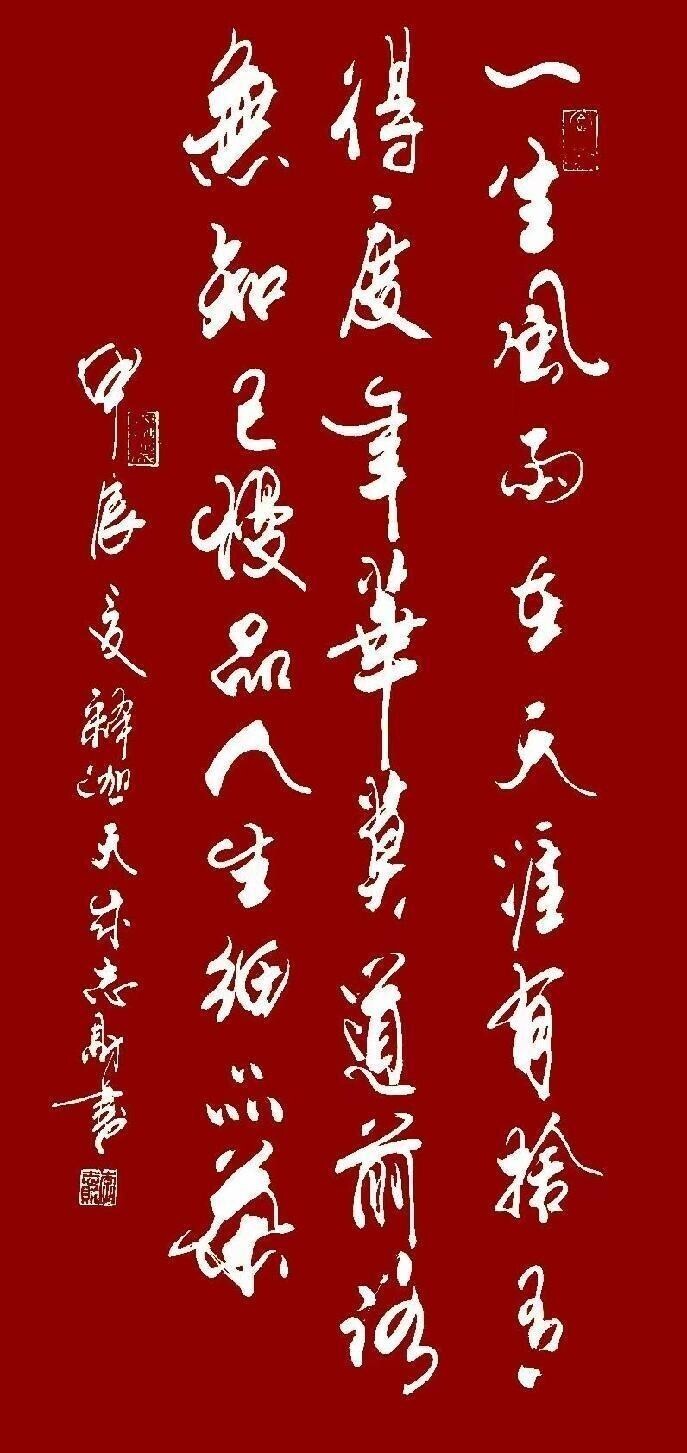 一生風雨在天涯有捨有
得度年華莫道前路
無知己慢品人生細品茶
甲辰夏釋迦天成志剛書